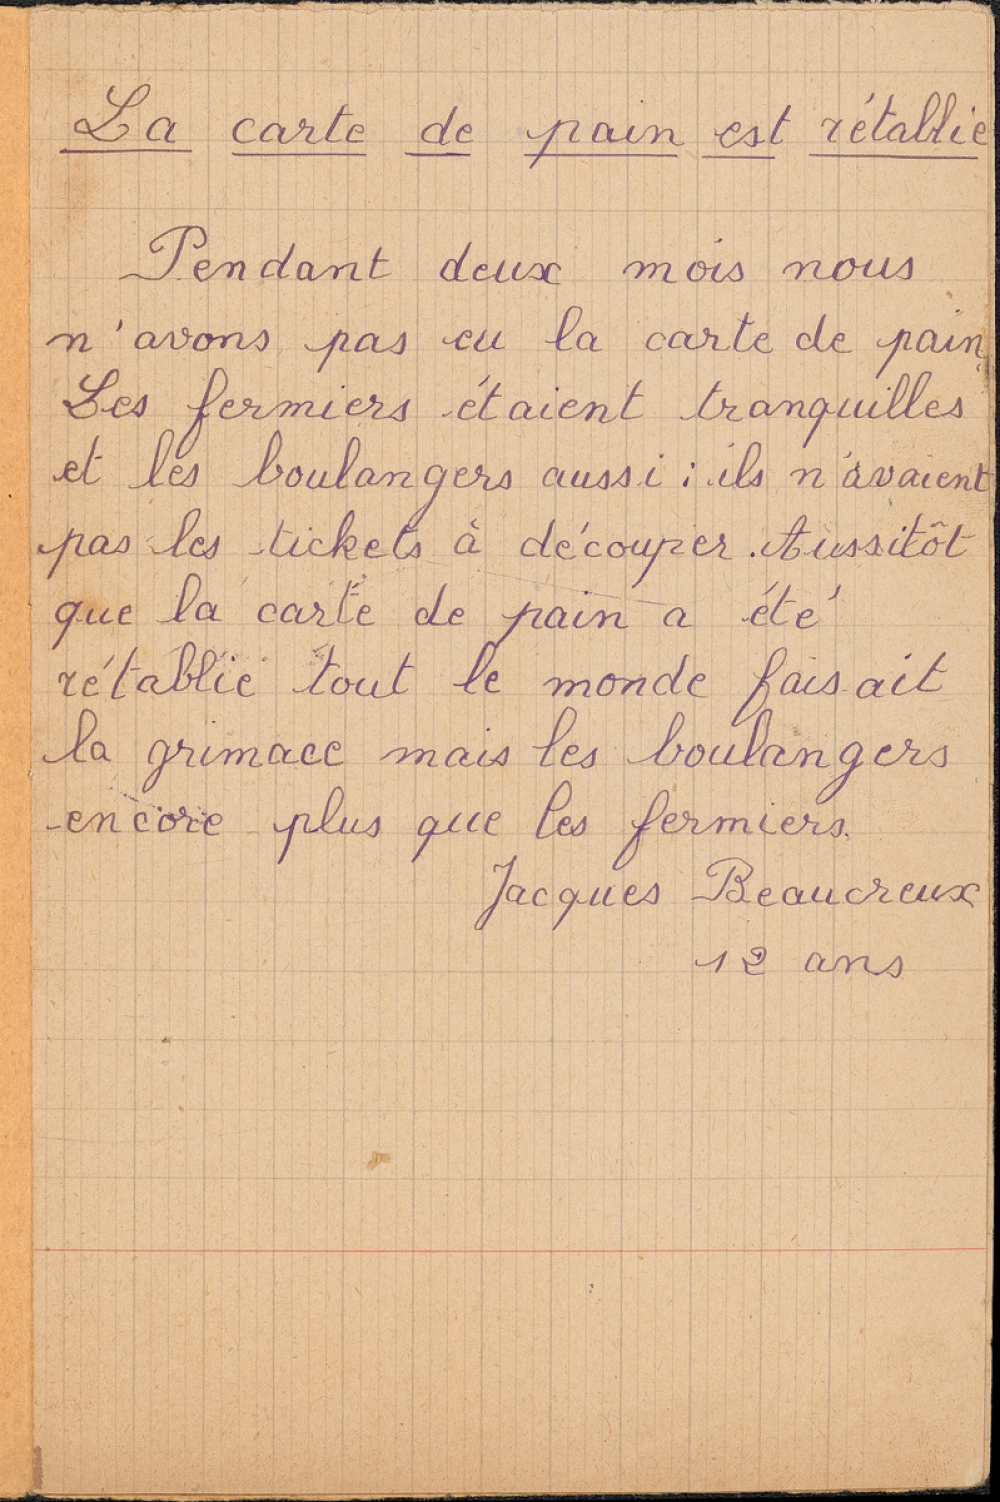 La carte de pain est rétablie
Pendant deux mois nous
n'avons pas eu la carte de pain.
Les fermiers étaient tranquilles
et les boulangers aussi ; ils n'avaient
pas les tickets à découper. Aussitôt
que la carte de pain a été
rétablie tout le monde faisait
la grimace mais les boulangers
encore plus que les fermiers.
Jacques Beaucreux
12 ans